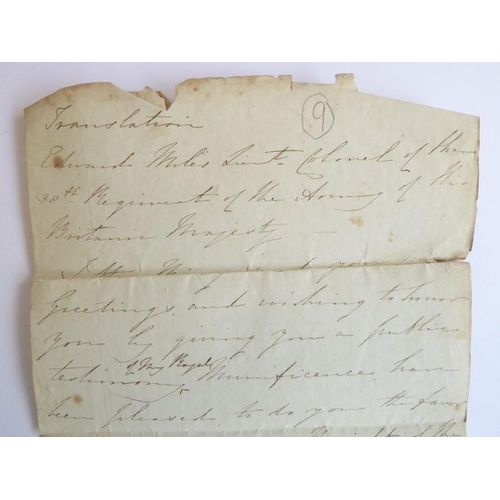 9
Translation
Edward Miles Lieut. Colonel of the
38th Regiment of the Army of His
Britanic Majesty
I the King send you
Greetings, and wishing to honor
you by giving you a public
testimony of My Royal Munificence, have
been pleased to do you the favor
of the